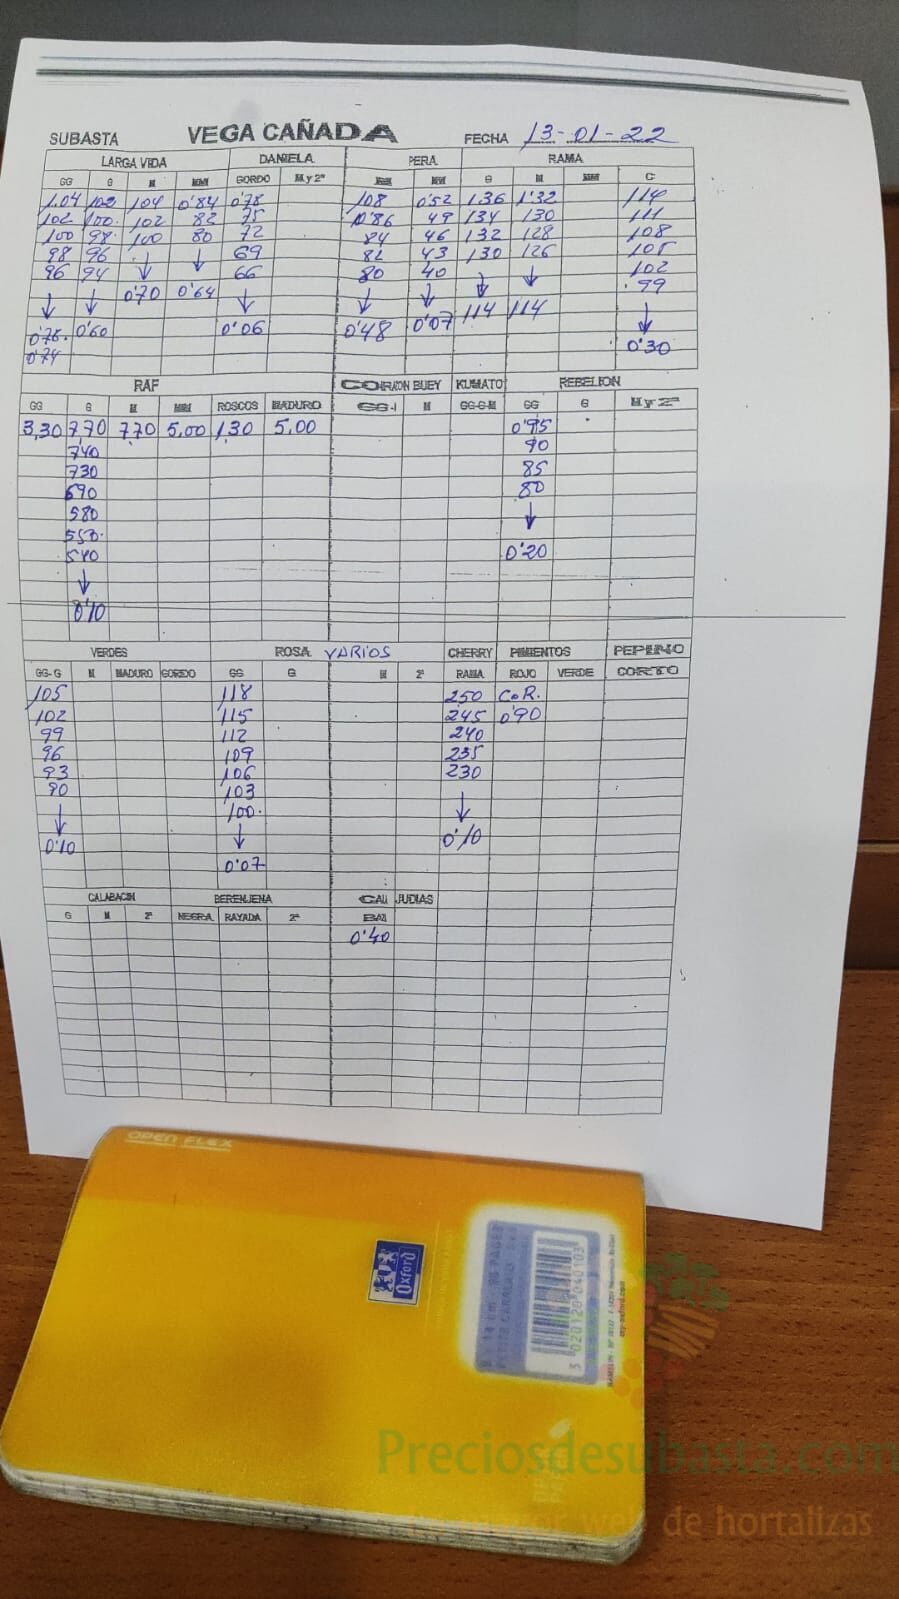 SUBASTA VEGA CAÑADA FECHA 13-01-22
LARGA VIDA DANIELA PERA RAMA
GG G M MM GORDO M y 2ª MM G M MM C
1.04 102 104 0'84 0'78 108 0'52 1.36 1'32 114
102 100. 102 82 75 0'86 49 134 130 111
100 98. 100 80 72 84 46 132 128 108
98 96 ↓ ↓ 69 82 43 130 126 105
96 94 ↓ 66 80 40 102
↓ ↓ 0'70 0'64 ↓ ↓ ↓ ↓ ↓ .99
0'76. 0'60 0'06 0'48 0'07 114 114 ↓
0'74 0'30
RAF CORAZON BUEY KUMATO REBELION
GG G M MM ROSCOS MADURO GG-G M GG-G-M GG G M y 2ª
3,30 7,70 7,70 5,00 1,30 5,00 0'95
740 90
730 85
690 80
580 ↓
550.
540 0'20
↓
0'10
VERDES ROSA VARIOS CHERRY PIMIENTOS PEPINO
GG-G M MADURO GORDO GG G M 2ª RAMA ROJO VERDE CORTO
105 118 250 CoR.
102 115 245 0'90
99 112 240
96 109 235
93 106 230
90 103
↓ 100. ↓
0'10 ↓ 0'10
0'07
CALABACIN BERENJENA CALA JUDIAS
G M 2ª NEGRA RAYADA 2ª BAZ
0'40
OPEN FLEX
Oxford
3 020120 040103
my-oxford.com
Preciosdesubasta.com
La mayor web de hortalizas